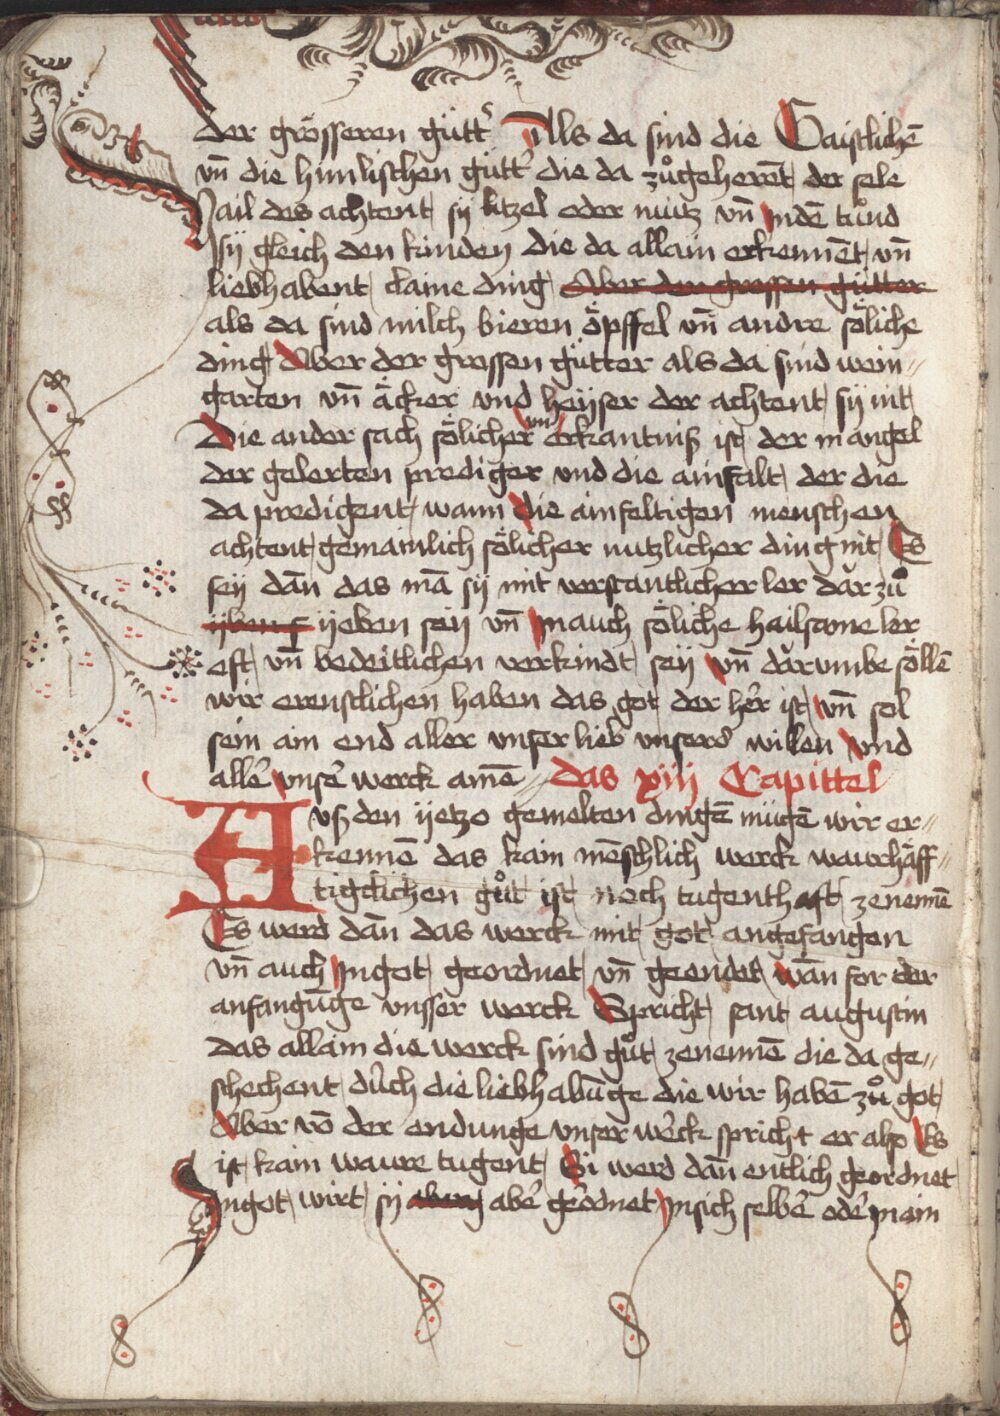 der grösseren gütt᷑ Als da sind die Gaistlichē
vn̄ die himlischen gütt᷑ die da zůgeherēt der sele
Hail des achtent sÿ lützel oder nütz vn̄ Jndē tůnd
sÿ gleich den kinden die da allain erkennēt vn̄
liebhabent claine ding Aber den grossen gütter
als da sind milch bieren öpffel vn̄ andre söliche
ding Aber der grossen gütter als da sind wein⸗
garten vn̄ äcker vnd heÿser der achtent sÿ nit
Die ander sach sölicher vn erkantniß ist der mangel
der gelerten prediger vnd die ainfalt der die
da predigent wann die ainfeltigen menschen
achtent gemainlich sölicher nutzlicher ding nit Es
seÿ dan̄ das mā sÿ mit verstantlicher ler dar zů
ÿben s ÿeben seÿ vn̄ Jn auch söliche hailsame ler
oft vn̄ bedeitlichen verkindt seÿ vn̄ darumbe söllē
wir erenstlichen haben das got der her̄ ist vn̄ sol
sein ain end aller vnser lieb vnsers willen vnd
allē vnsē werck amē Das xiij Capittel
Aus den ÿetzo gemelten dingē mügē wir er⸗
kennē das kain mēschlich werck waurhäff⸗
tigclichen gůt ist noch tugenthaft zenennē
Es werd dan̄ das werck mit got angefangen
vn̄ auch Jn got geordnet vn̄ geendet wan̄ for der
anfangūge vnsser werck Spricht sant augustin
das allain die werck sind gůt zenennē die da ge⸗
schechent dūch die liebhabūge die wir habē zů got
Aber vō der endunge vnser wērck spricht er also Es
ist kain waure tugent Si werd dan̄ entlich geordnet
Jn got wirt sÿ aber abē geōdnet Jn sich selbē odē Jn ain